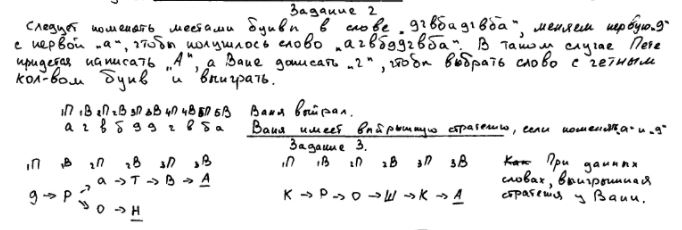 Задание 2
Следует поменять местами буквы в слове „дгвбадгвба“, меняем первую „д“
с первой „а“, чтобы получилось слово „агвбддгвба“. В таком случае Пете
придется написать „А“, а Ване дописать „г“, чтобы выбрать слово с четным
кол-вом букв и выиграть.
1П 1В 2П 2В 3П 3В 4П 4В 5П 5В Ваня выиграл.
а г в б д д г в б а Ваня имеет выигрышную стратегию, если поменять „а“ и „д“
Задание 3.
1П 1В 2П 2В 3П 3В 1П 1В 2П 2В 3П 3В При данных
а → Т → В → А словах, выигрышная
д → Р К → Р → О → Ш → К → А стратегия у Вани.
О → Н